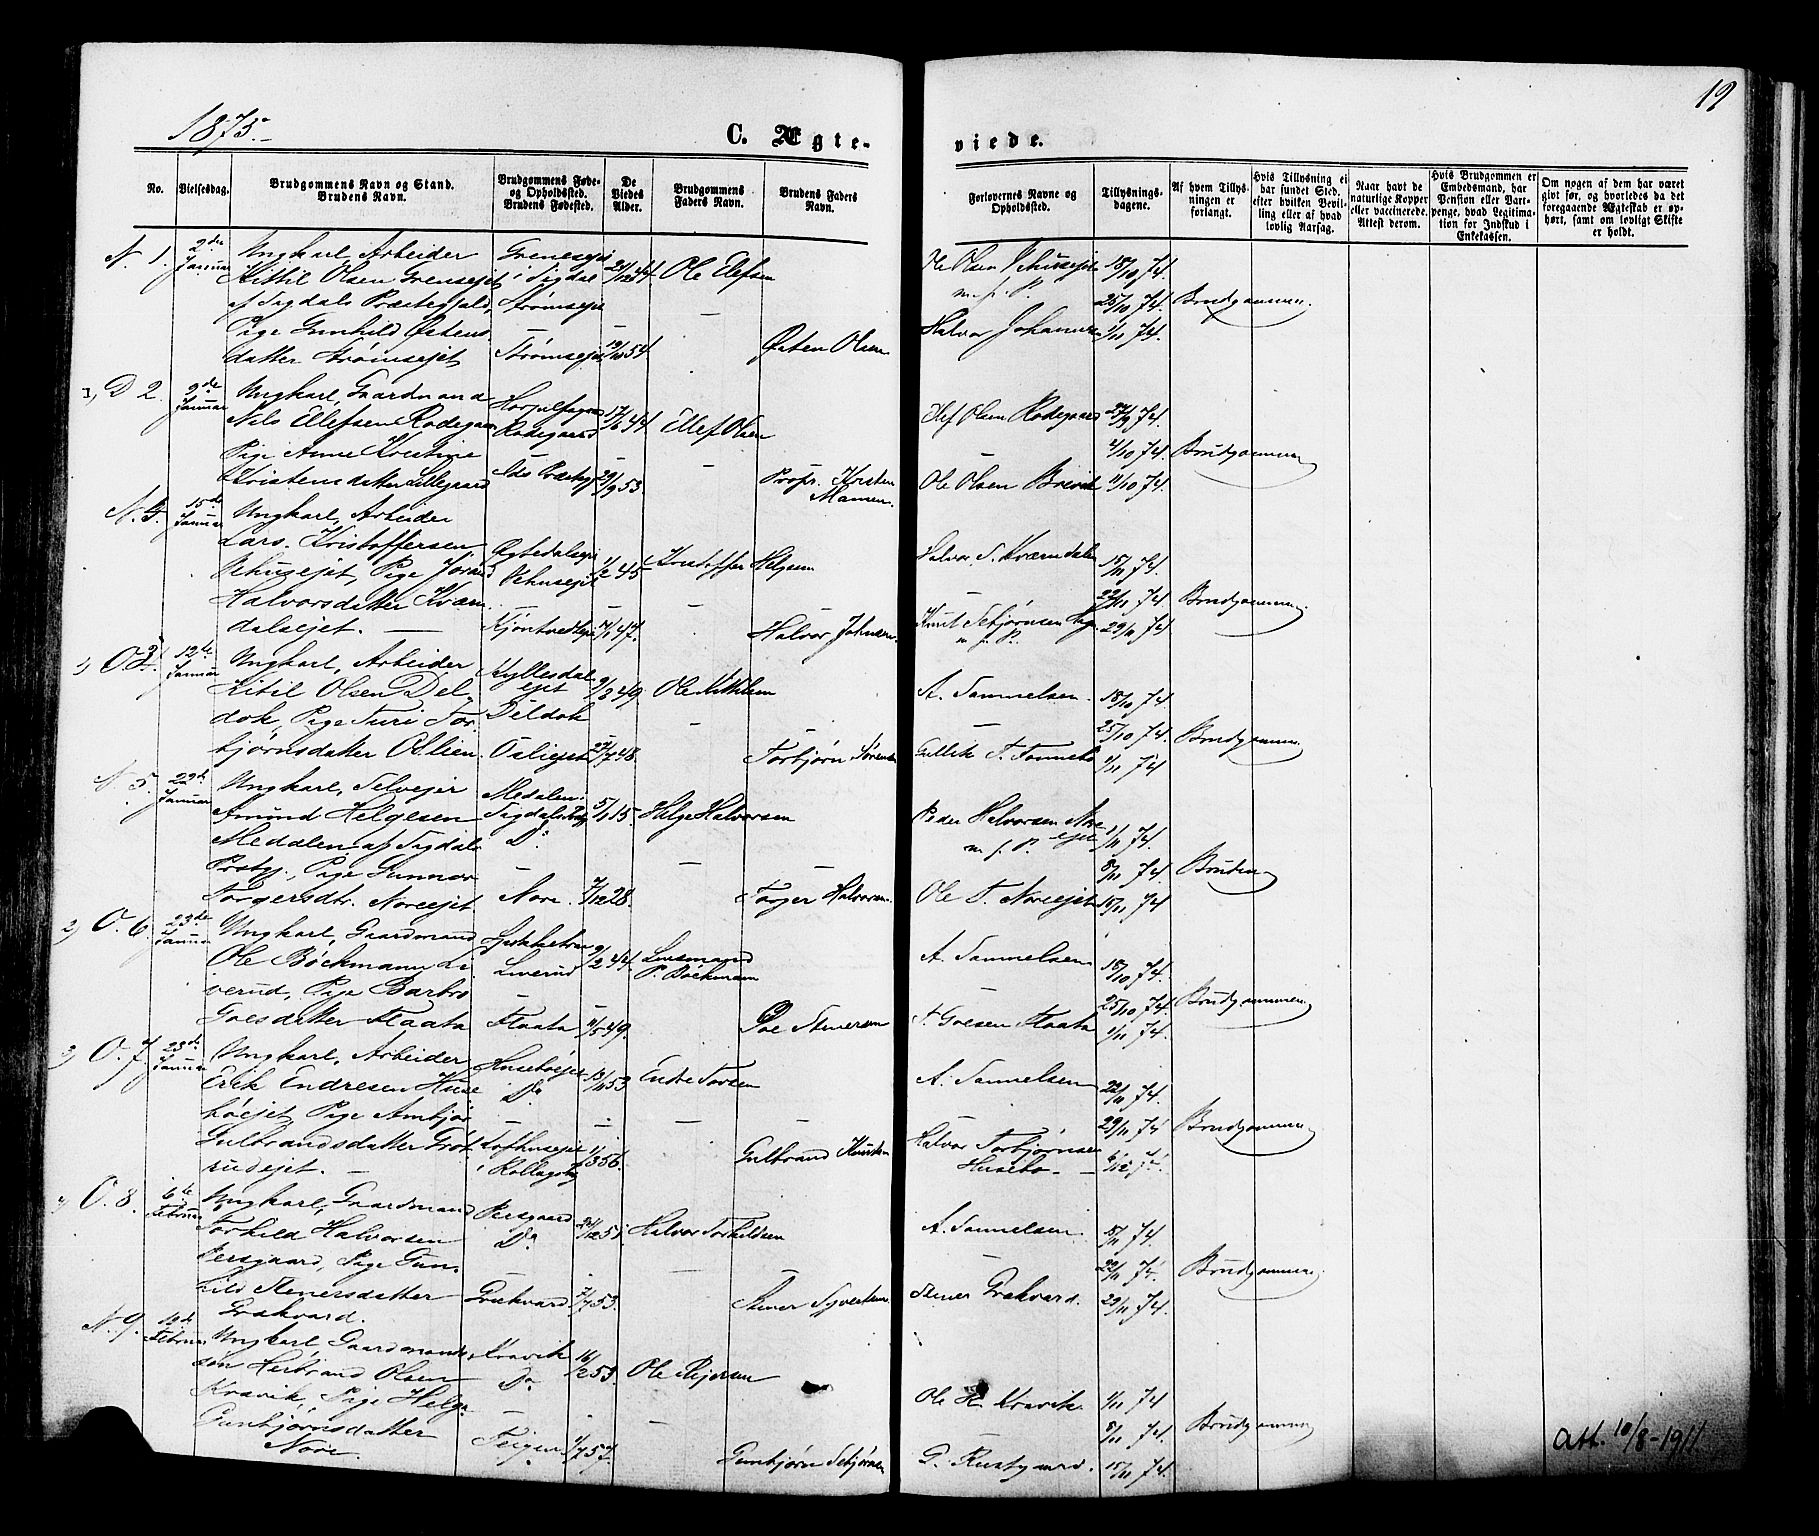 19
1875.
C. Ægte-
viede.
No.
Vielsesdag.
Brudgommens Navn og Stand.
Brudens Navn.
Brudgommens Føde-
og Opholdssted.
Brudens Fødested.
De
Viedes
Alder.
Brudgommens
Faders Navn.
Brudens Faders
Navn.
Forlovernes Navne og
Opholdssted.
Tillysnings-
dagene.
Af hvem Tillys-
ningen er
forlangt.
Hvis Tillysning ei
har fundet Sted,
efter hvilken Bevil-
ling eller af hvad
lovlig Aarsag.
Naar havt de
naturlige Kopper
eller vaccinerede.
Attest derom.
Hvis Brudgommen er
Embedsmand, har
Pension eller Vart-
penge, hvad Legitima-
tion for Indskud i
Enkekassen.
Om nogen af dem har været
givt før, og hvorledes da det
foregaaende Ægteskab er op-
hørt, samt om lovligt Skifte
er holdt.
N. 1. 2den Januar
Ungkarl, Arbeider
Kittil Olsen Grenseejet
af Sigdals Præstegjeld,
Pige Gunhild Østens
datter Strømsejet
i Sigdal
Strømsejet
Strømsejet
19/10 54.
Ole Elefsen
Østen Olsen
Ole Olsen
m. f. P.
Halvor Johannesen
18/10 74.
25/10 74.
1/11 74.
Brudgommen.
1, D 2. 9de Januar
Ungkarl, Gaardmand
Nils Ellefsen Rodegaard
Pige Anne Kristine
Kristensdatter Lillegaard
Rodegaard
17/6 44.
29/9 53.
Ellef Olsen
Propr. Kristen
Mamen.
Ellef Olsen Rodegaard
Ole Olsen Brevik
27/9 74.
4/10 74.
11/10 74.
Brudgommen
15de Januar
Ungkarl, Arbeider
Lars Kristoffersen
Vehusejet, Pige
Halvorsdatter Kværn
dalsejet.
Øgtedalsejet
Vehusejet
1/2 45
47.
Kristoffer Helgesen
Halvor Johnsen
Halvor S. Kværndalen
Knut Sebjørnsen
m. f. P.
15/11 74.
22/11 74.
29/11 74
Brudgommen.
12te Januar
Ungkarl, Arbeider
Kitil Olsen Del
dok, Pige Turi Tor
bjørnsdatter Oslien
Kyllesdal
ejet
Deldok
Osliejet
9/3 49.
48.
Ole Kittilsen
Torbjørn Sørensen
A. Samuelsen.
Gullik T.
18/10 74.
25/10 74.
1/11 74
Brudgommen.
N. 5. 22de Januar
Ungkarl, Selvejer
Amund Helgesen
Medalen af Sigdals
Prstgj., Pige Gunnor
Torgersdtr. Noreejet
Medalen i
Do
Nore
5/1 15.
7/12 28.
Helge Halvorsen
Torger Halvorsen
Peder Halvorsen Nore
ejet
m. f. P.
Ole T. Noreejet
1/11 74.
8/11 74.
15/11 74
Bruden
2) O. 6. 23de Januar
Ungkarl, Gaardmand
Ole Bóckmann Li
verud, Pige Barbro
Goesdatter Flaata
Liverud
Flaata
9/2 44.
11/5 49.
Lensmand
P. Bóckmann
Goe Stenersen
A. Samuelsen
T. Goesen Flaata
18/10 74.
25/10 74.
1/11 74.
Brudgommen
3) O. 7. 23de Januar
Ungkarl, Arbeider
Erik Endresen Huse
bóejet, Pige Ambjør
Gulbrandsdatter Grót
rudejet.
Husebóejet
Do
Lofthusejet
i Rollagstg
13/11 53
1/3 56.
Endre Torsen
Gulbrand Knutsen
A. Samuelsen
Halvor Torbjørnsen
Husebo
22/11 74.
29/11 74
6/12 74
Brudgommen
O. 8. 6te Februar
Ungkarl, Gaardmand
Torkild Halvorsen
Persgaard, Pige Gun
hild Stenersdatter
Grækvard.
Persgaard
Do
Grækvard
24/12 51.
7/7 53.
Halvor Torkildsen
Stener Syvertsen
A. Samuelsen
Stener Grækvard.
15/11 74.
22/11 74.
29/11 74.
Brudgommen
N. 9. Februar
Ungkarl, Gaardmands
søn Herbrand Olsen
Kravik, Pige Helga
Gunbjørnsdatter
Nore
Kravik
Do
Teigen
16/2 53.
1/7 57.
Ole Rejersen
Gunbjørn Sebjørnsen
Ole H. Kravik
G. Rustgaard.
1/11 74
8/11 74.
15/11 74.
Brudgommen
Att. 10/8-1911.